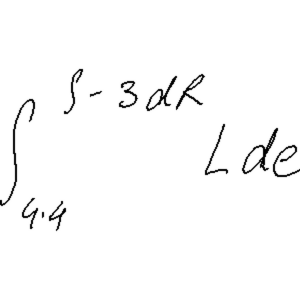 ∫_{4.4}^{∫-3dR} L de